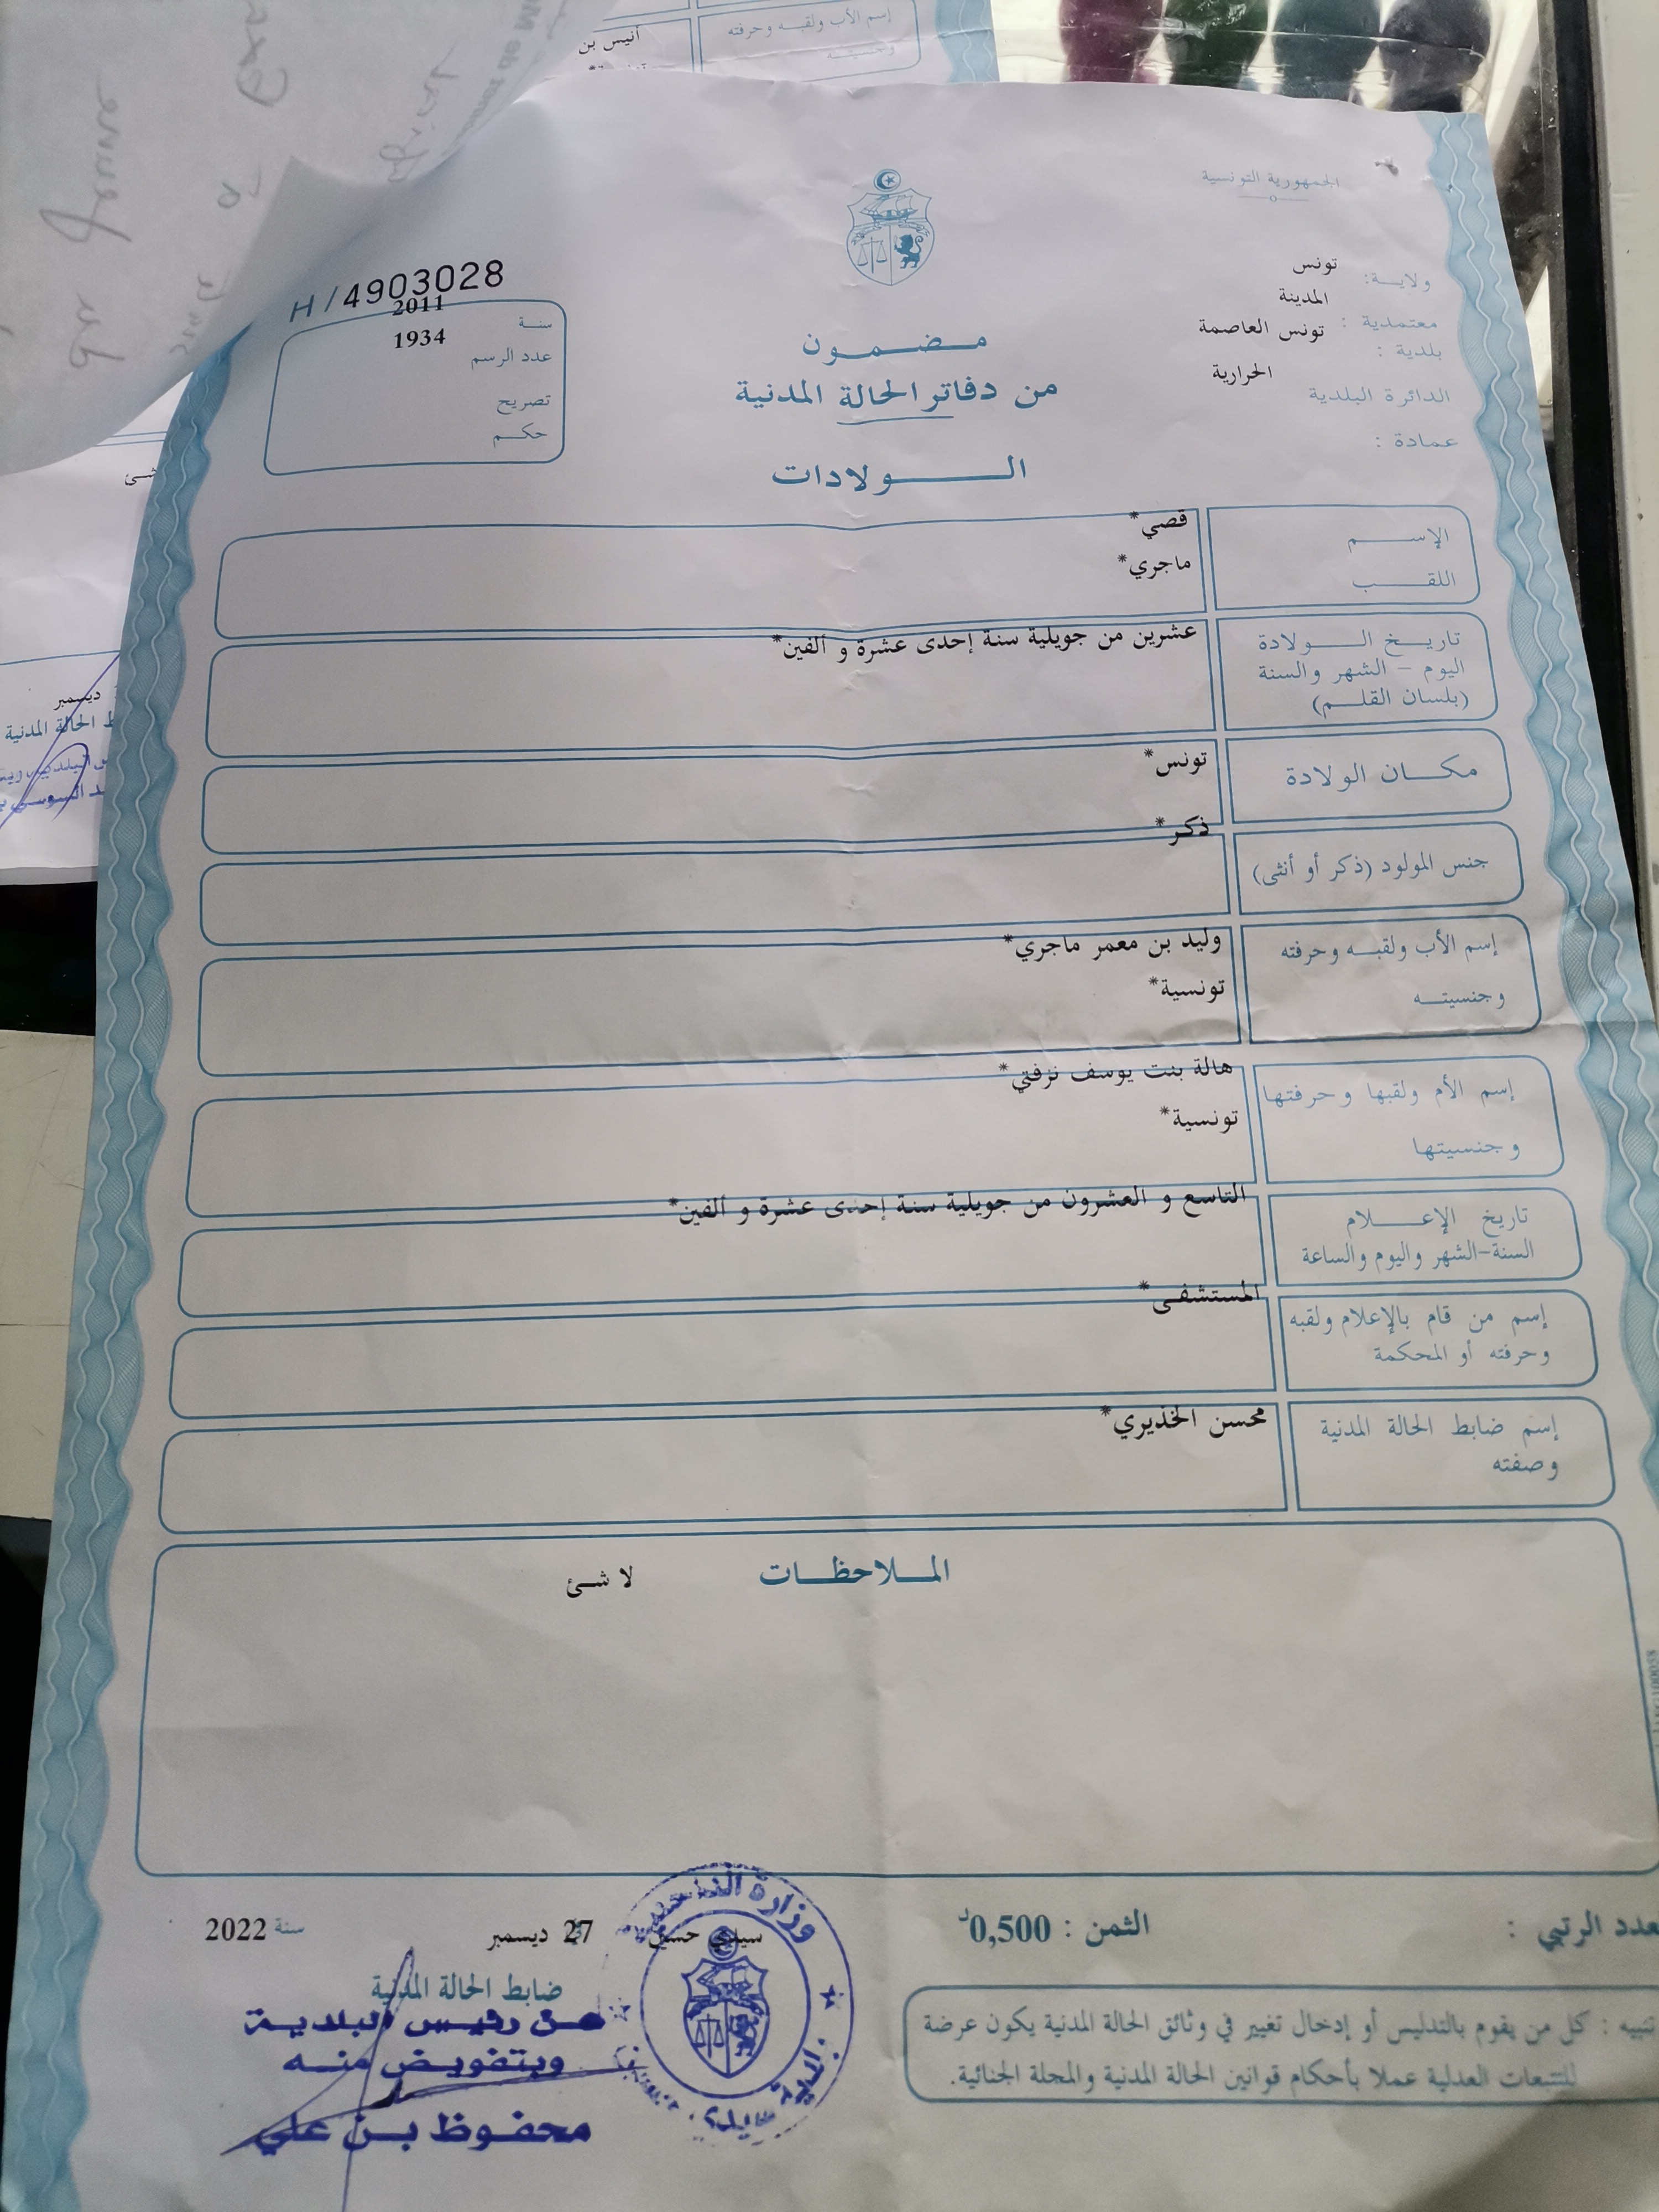 إسم الأب ولقبه وحرفته
وجنسيته
أنيس بن
الجمهورية التونسية
ولاية: تونس
المدينة
معتمدية :
تونس العاصمة
بلدية :
الحرارية
الدائرة البلدية
عمادة :
H/4903028
سنة 2011
عدد الرسم 1934
تصريح
حكم
مضمون
من دفاتر الحالة المدنية
الولادات
الإسم قصي*
اللقب ماجري*
تاريخ الولادة عشرين من جويلية سنة إحدى عشرة و ألفين*
اليوم - الشهر والسنة
(بلسان القلم)
مكان الولادة تونس*
جنس المولود (ذكر أو أنثى) ذكر*
إسم الأب ولقبه وحرفته وليد بن معمر ماجري*
وجنسيته تونسية*
إسم الأم ولقبها وحرفتها هالة بنت يوسف نزفتي*
وجنسيتها تونسية*
تاريخ الإعلام التاسع و العشرون من جويلية سنة إحدى عشرة و ألفين*
السنة-الشهر واليوم والساعة
إسم من قام بالإعلام ولقبه المستشفى*
وحرفته أو المحكمة
إسم ضابط الحالة المدنية محسن الخذيري*
وصفته
الملاحظات لا شئ
عدد الرتبي :
الثمن : 0,500د
سيدي حسين 27 ديسمبر سنة 2022
ضابط الحالة المدنية
عن رئيس البلدية
وبتفويض منه
محفوظ بن علي
وزارة الداخلية
تنبيه : كل من يقوم بالتدليس أو إدخال تغيير في وثائق الحالة المدنية يكون عرضة
للتتبعات العدلية عملا بأحكام قوانين الحالة المدنية والمجلة الجنائية.
شئ
ديسمبر
ط الحالة المدنية